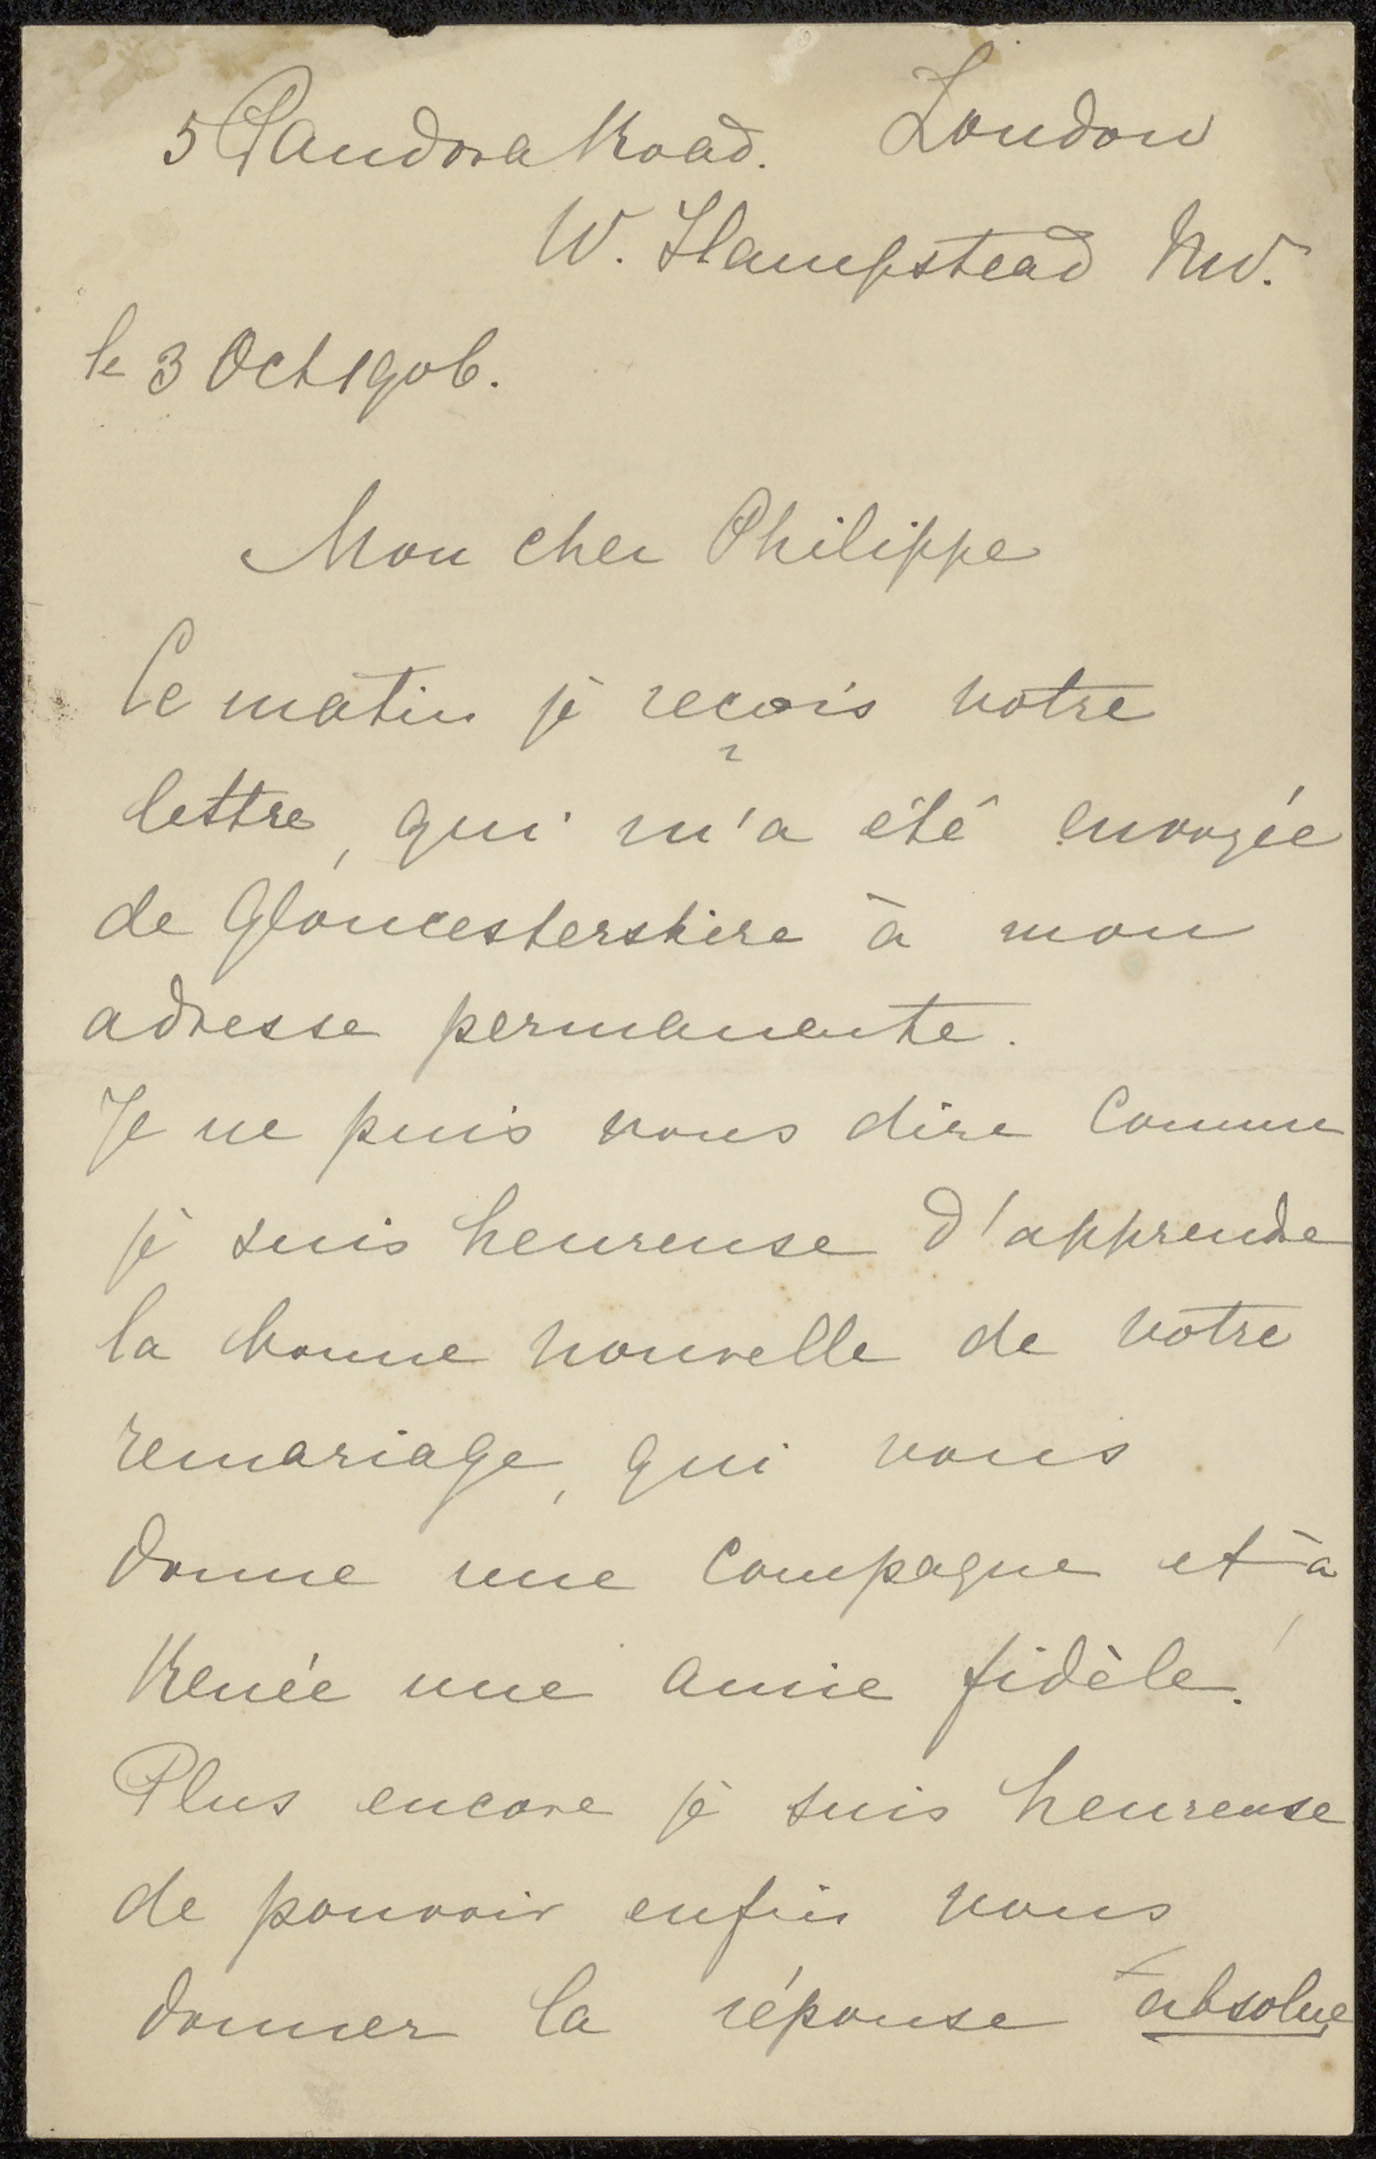 5 Pandora Road. London
W. Hampstead NW.
le 3 Oct 1906.
Mon cher Philippe
Ce matin je reçois votre
lettre, qui m'a été envoyée
de Gloucestershire à mon
adresse permanente.
Je ne puis vous dire comme
je suis heureuse d'apprendre
la bonne nouvelle de votre
remariage, qui vous
donne une compagne et à
Renée une amie fidèle!
Plus encore je suis heureuse
de pouvoir enfin vous
donner la réponse absolue,